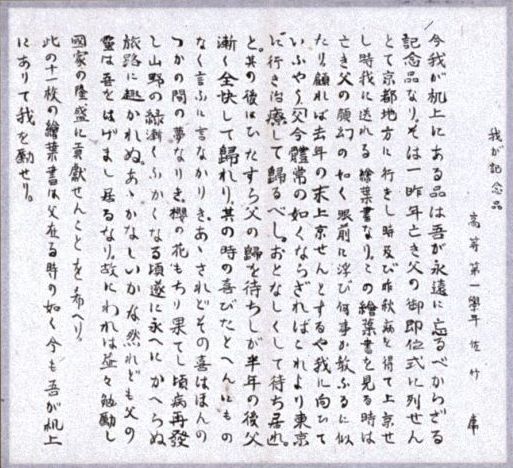 我が記念品
高等第一學年 佐竹 庸
今我が机上にある品は吾が永遠に忘るべからざる
記念品なり。そは一昨年亡き父の御即位式に列せん
とて京都地方に行きし時及び昨秋病を得て上京せ
し時我に送れる繪葉書なり。この繪葉書を見る時は
亡き父の顔幻の如く眼前に浮び何事か教ふるに似
たり。顧れば去年の末上京せんとするや我に向ひて
いふやう父今體常の如くならざればこれより東京
に行き治療して歸るべし。おとなしくして待ち居れ
と。其の後はひたすら父の歸を待ちしが半年の後父
漸く全快して歸れり。其の時の喜びたとへんにもの
なく言ふに言なかりき。あゝされどその喜はほんの
つかの間の夢なりき。櫻の花もちり果てし頃病再發
し山野の綠漸くふかくなる頃遂に永へにかへらぬ
旅路に赴かれぬ。あゝかなしいかな。然れども父の
靈は吾をはげまし居るなり。故にわれは益々勉勵し
國家の隆盛に貢獻せんことを希へり。
此の十一枚の繪葉書は父在る時の如く今も吾が机上
にありて我を勵せり。